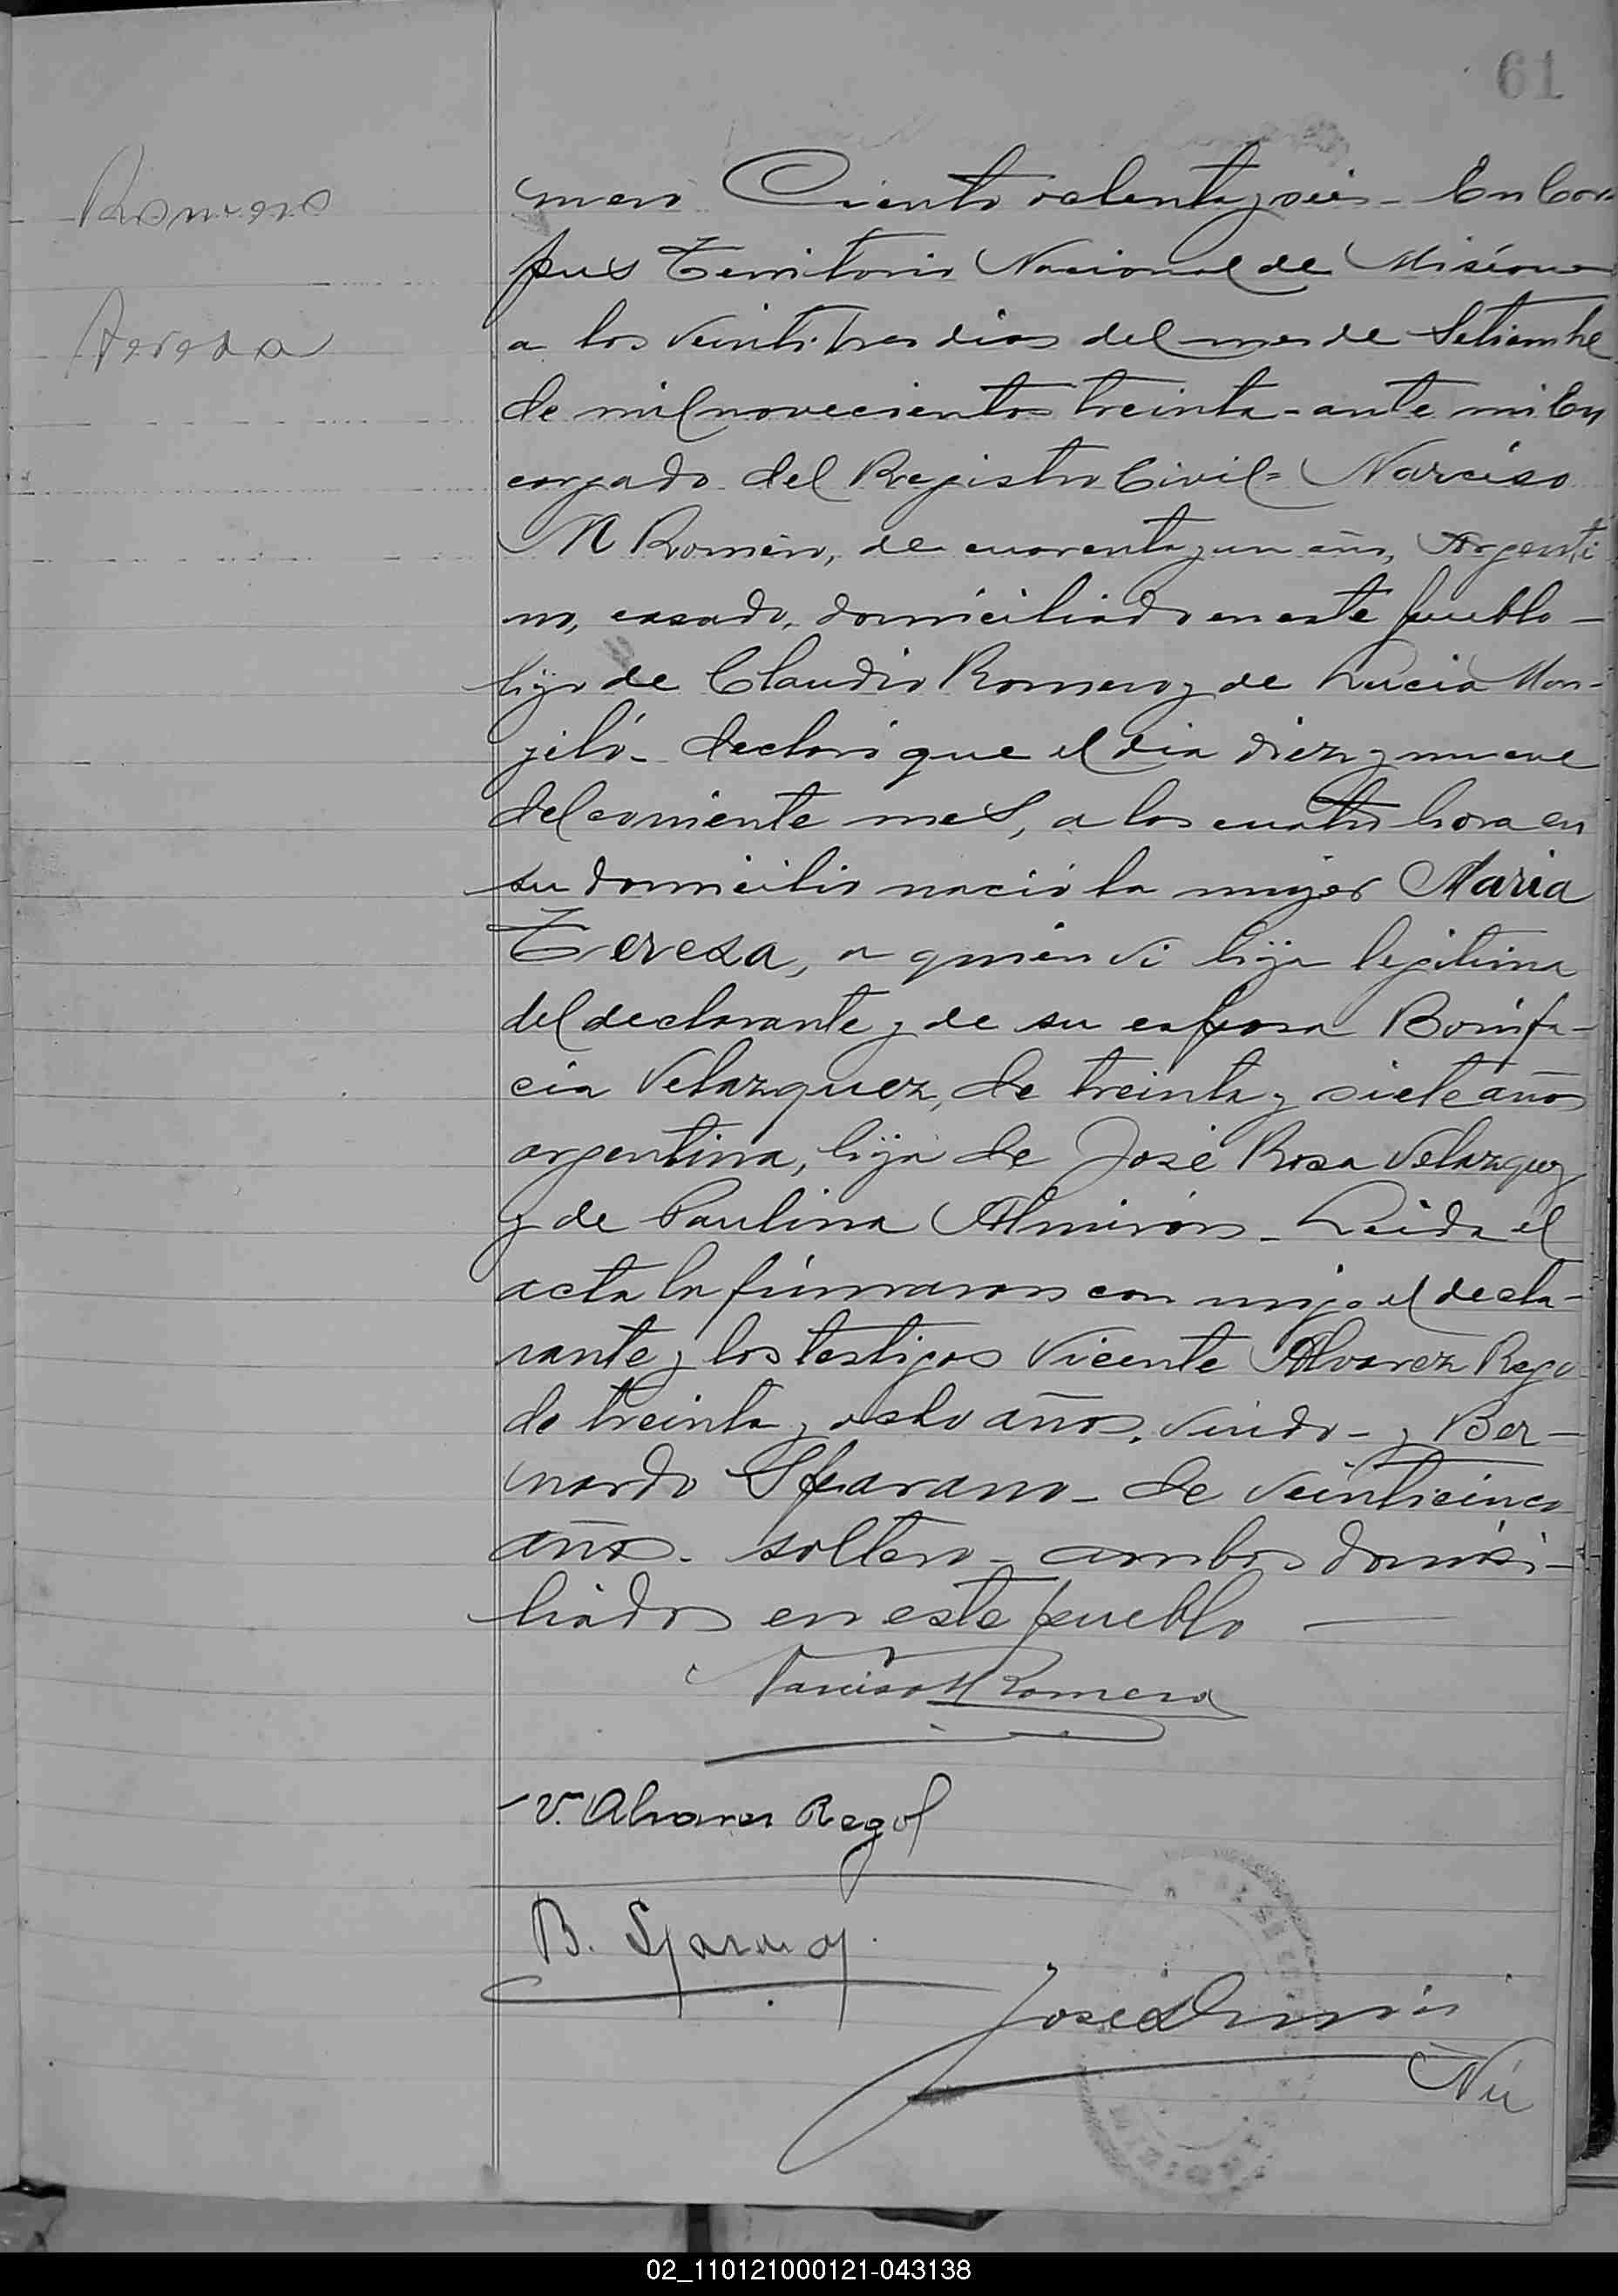 61
Romero
Teresa
mero Ciento ochenta y seis - En Cor-
pus Territorio Nacional de Misiones
a los veintitres dias del mes de Setiembre
de mil novecientos treinta - ante mi En
cargado del Registro Civil = Narciso
M Romero, de cuarenta y un año, Argenti
no, casado, domiciliado en este pueblo -
hijo de Claudio Romero y de Lucia Mon-
jeló - declaró que el dia diez y nueve
del corriente mes, a las cuatro hora en
su domicilio nació la mujer Maria
Teresa, a quien vi hija legitima
del declarante y de su esposa Bonifa-
cia Velazquez, de treinta y siete años
argentina, hija de José Rosa Velazquez
y de Paulina Almirón - Leida el
acta la firmaron con migo el decla-
rante y los testigos Vicente Alvarez Rego
de treinta y ocho años, viudo - y Ber-
nardo Sparano - de veinticinco
años - soltero - ambos domisi-
liados en este pueblo
Narciso M Romero
V. Alvarez Regol
B. Sparano
José
Nú
02_110121000121-043138